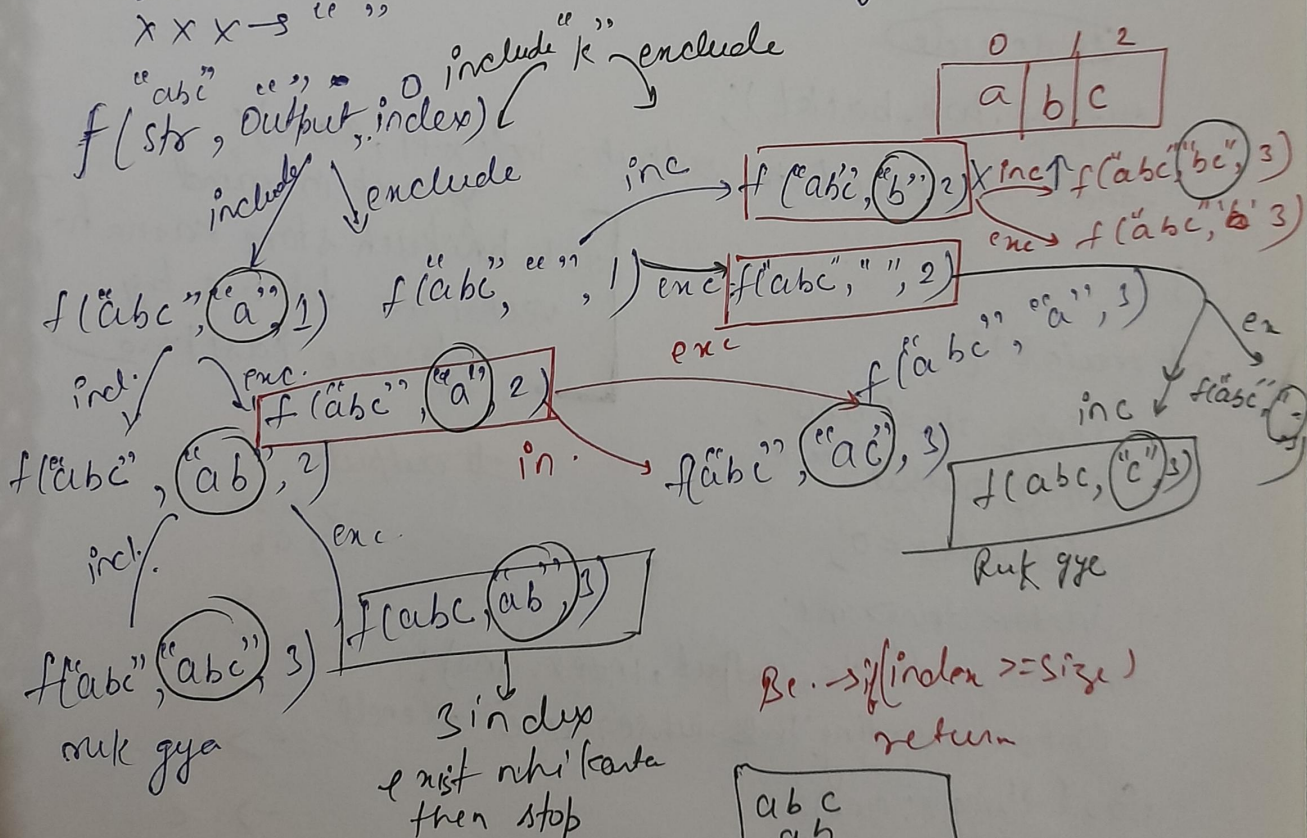 x x x → " "
include "k" exclude
"abc" " " 0
f(str, output, index)
0 1 2
a b c
include exclude
inc f("abc", "b", 2) x inc f("abc", "bc", 3)
exc f("abc", "b" 3)
f("abc", "a", 1) f("abc", " ", 1) exc f("abc", " ", 2)
exc f("abc", "a", 3) ex
incl. exc. f("abc", "a", 2) inc f("abc",
f("abc", "ab", 2) in. f("abc", "ac", 3) f(abc, "c", 3)
incl. exc.
Ruk gye
f(abc, "ab", 3)
f("abc", "abc", 3)
ruk gya
3 index
exist nhi karta
then stop
Bc. → if(index >= size)
return
abc
ab